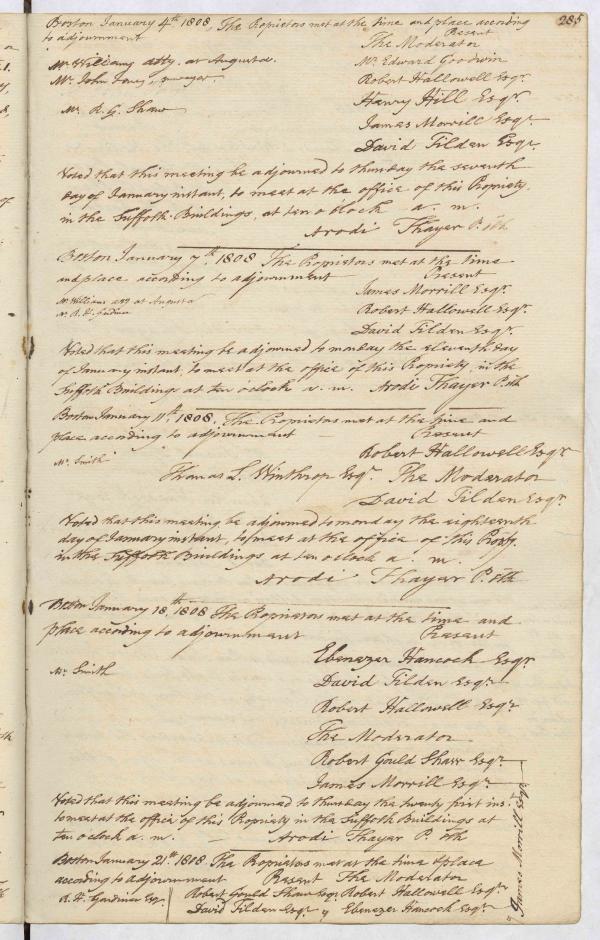 285
Boston January 4th 1808, The Proprietors met at the time and place according
to adjournment Present
The Moderator
Mr Williams atty. at Augusta. Mr. Edward Goodwin
Mr. John Jones, surveyor. Robert Hallowell Esqr.
Henry Hill Esqr.
Mr. R. G. Shaw James Morrill Esqr.
David Tilden Esqr.
Voted that this meeting be adjourned to thursday the seventh
day of January instant, to meet at the office of this Propriety
in the Suffolk Buildings, at ten o'clock a. m.
Arodi Thayer P. Clk
Boston January 7th 1808 The Proprietors met at the time
and place according to adjournment Present
James Morrill Esqr.
Mr Williams atty at Augusta
Mr. R. H. Gardiner Robert Hallowell Esqr.
David Tilden Esqr.
Voted that this meeting be adjourned to monday the eleventh day
of January instant, to meet at the office of this Propriety, in the
Suffolk Buildings at ten o'clock a. m. Arodi Thayer P. Clk
Boston January 11th 1808, The Proprietors met at the time and
place according to adjournment — Present
Robert Hallowell Esqr
Mr. Smith
Thomas L. Winthrop Esqr. The Moderator
David Tilden Esqr.
Voted that this meeting be adjourned to monday the eighteenth
day of January instant, to meet at the office of this Propy.
in the Suffolk Buildings at ten o clock a. m.
Arodi Thayer P. Clk
Boston January 18th 1808 The Proprietors met at the time and
place according to adjournment Present
Ebenezer Hancock Esqr
Mr. Smith
David Tilden Esqr.
Robert Hallowell Esqr
The Moderator
Robert Gould Shaw Esqr.
James Morrill Esqr.
Voted that this meeting be adjourned to thursday the twenty first ins.t
to meet at the office of this Propriety in the Suffolk Buildings at
ten o clock a. m. — Arodi Thayer P. Clk
Boston January 21st 1808 The Proprietors met at the time & place
according to adjournment Present The Moderator
R. H. Gardiner Esq. Robert Gould Shaw Esq. Robert Hallowell Esqr.
David Tilden Esqr. Ebenezer Hancock Esqr.
James Morrill Esqr.